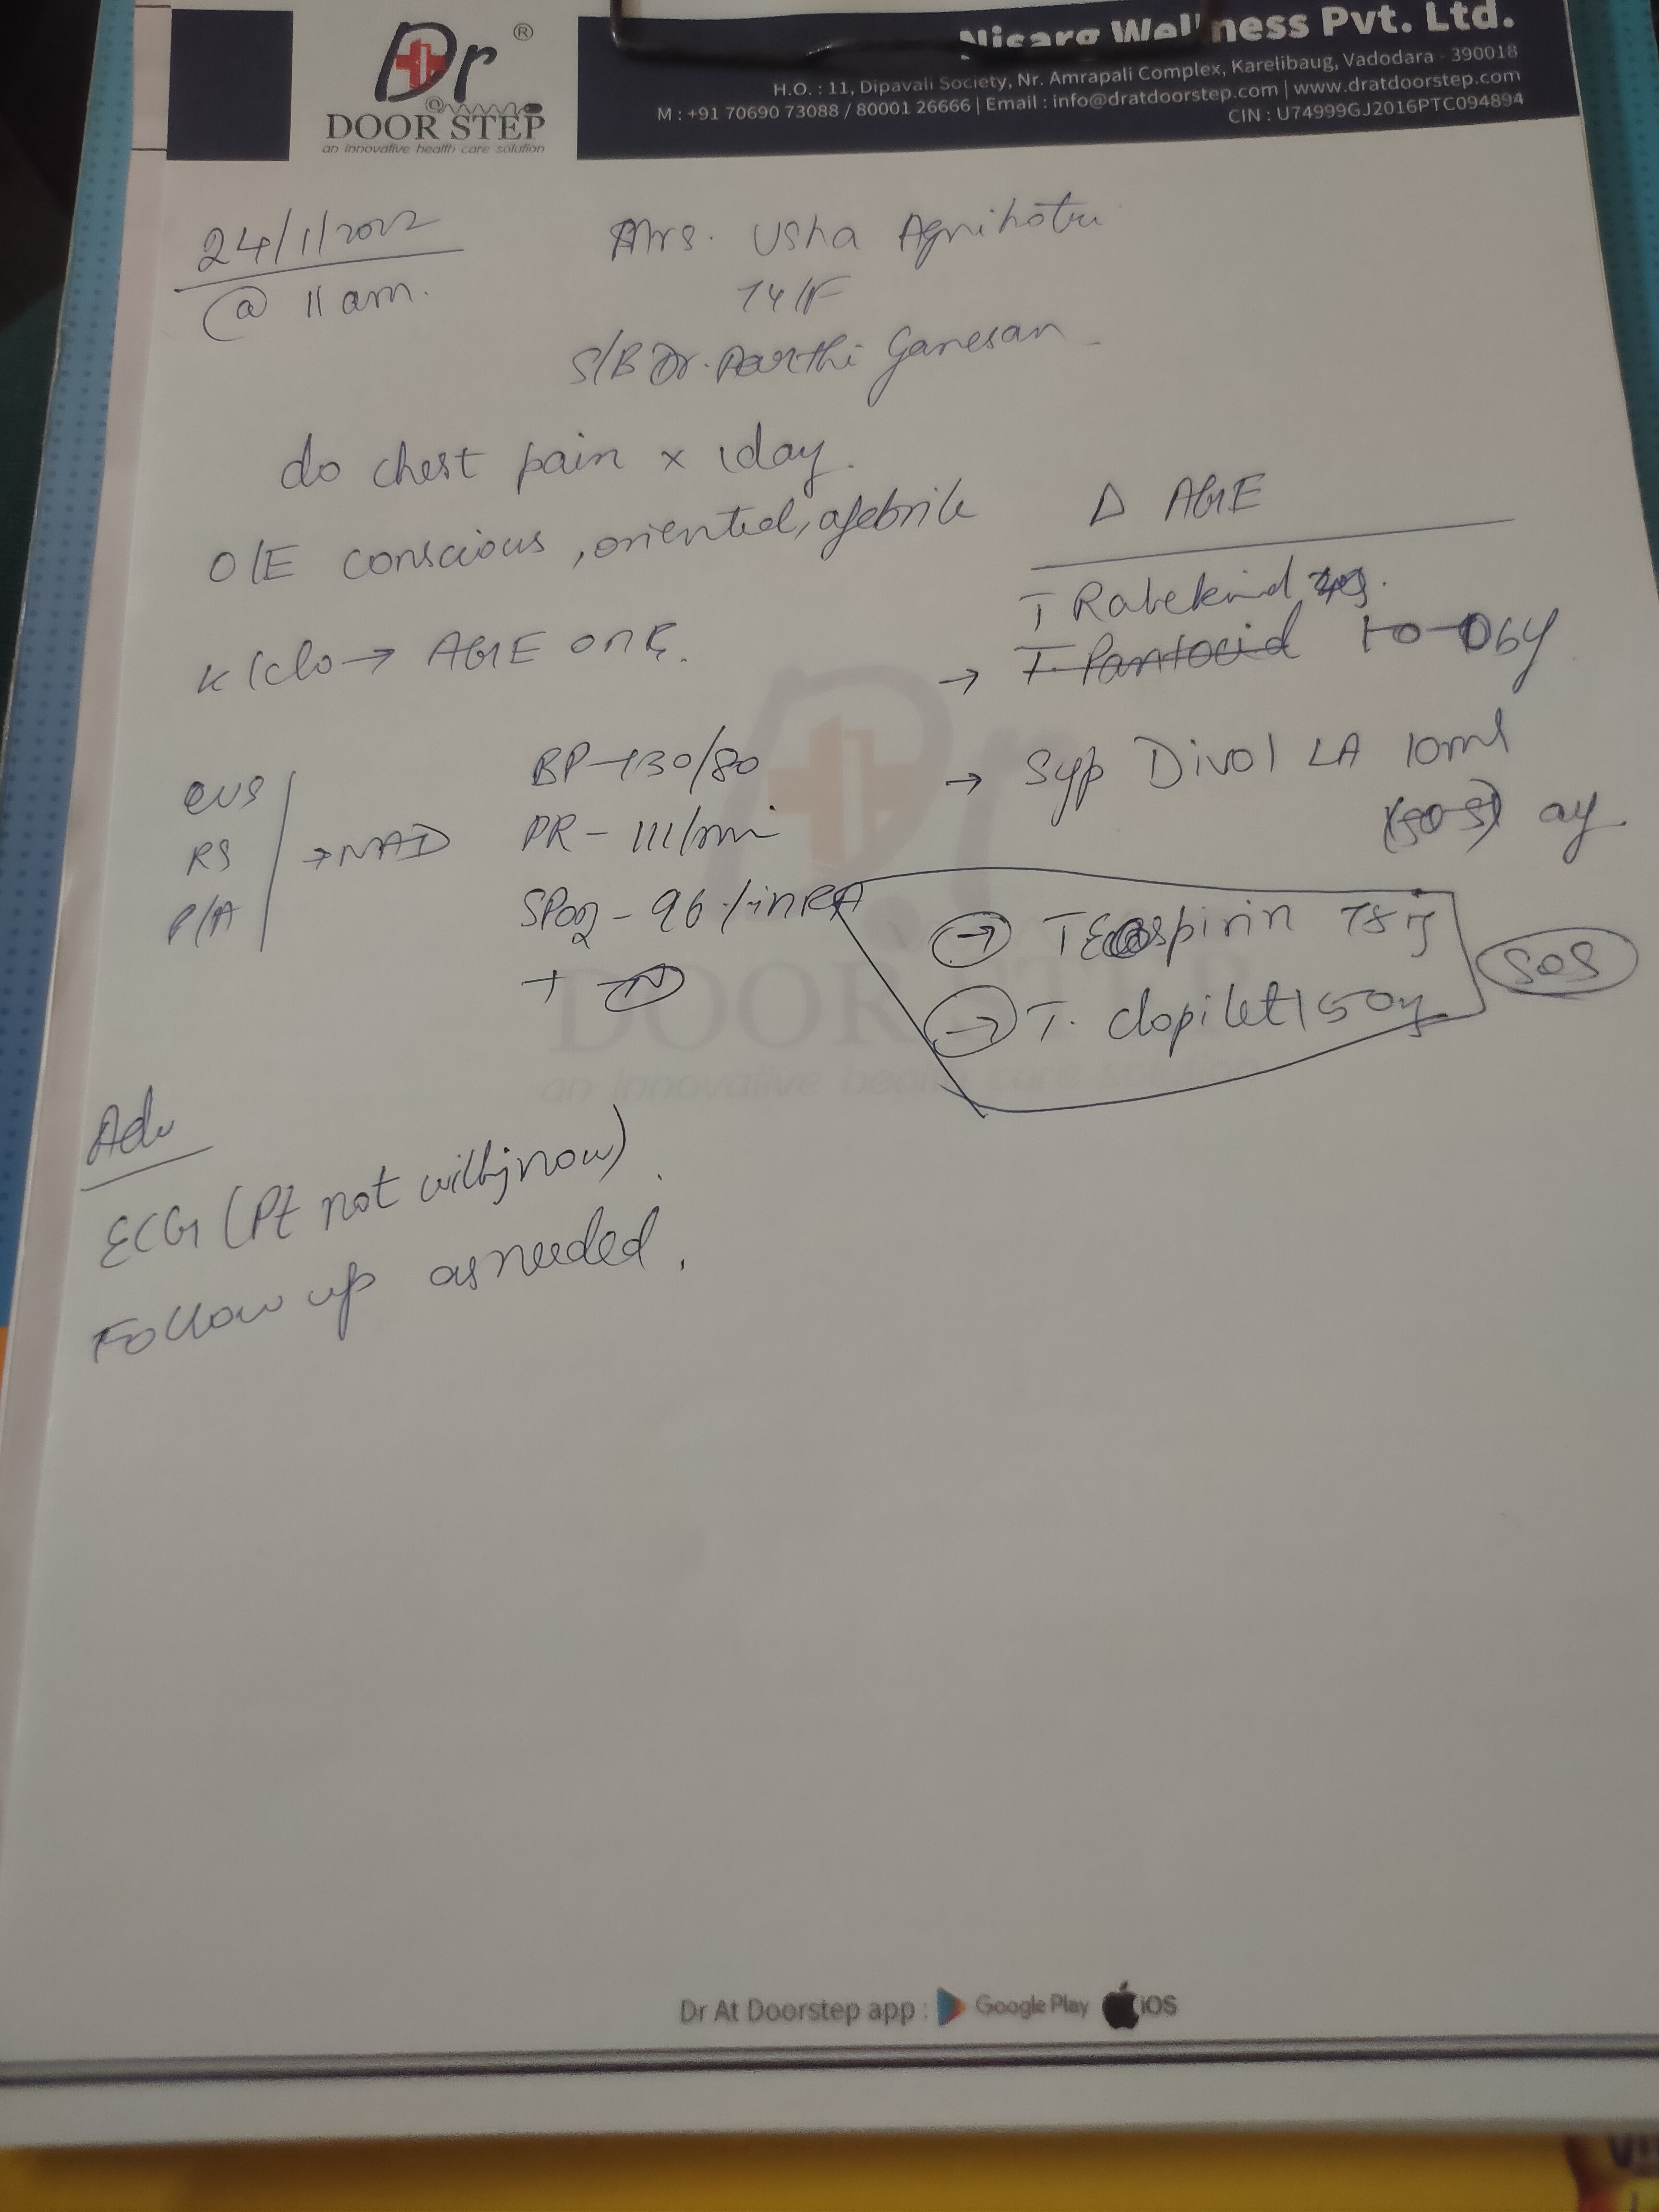 Dr ®
DOOR STEP
an innovative health care solution
Nisarg Wellness Pvt. Ltd.
H.O. : 11, Dipavali Society, Nr. Amrapali Complex, Karelibaug, Vadodara - 390018
M : +91 70690 73088 / 80001 26666 | Email : info@dratdoorstep.com | www.dratdoorstep.com
CIN : U74999GJ2016PTC094894
24/1/2022
@ 11 am.
Mrs. Usha Agnihotri
74/F
S/B Dr. Aarthi Ganesan
c/o chest pain x 1day.
O/E conscious, oriented, afebrile
K/c/o → AGE on
CVS
RS → NAD
P/A
BP - 130/80
PR - 111/min
SPO2 - 96% in RA
T N
Δ AGE
T Rabekind
→ T. Pantocid 1-0-0
→ Syp Divol LA 10ml
(SOS)
→ T Ecospirin 75
→ T. Clopilet 150
SOS
Adv
ECG (Pt not willing now)
Follow up as needed.
Dr
DOOR STEP
an innovative health care solution
Dr At Doorstep app : Google Play iOS